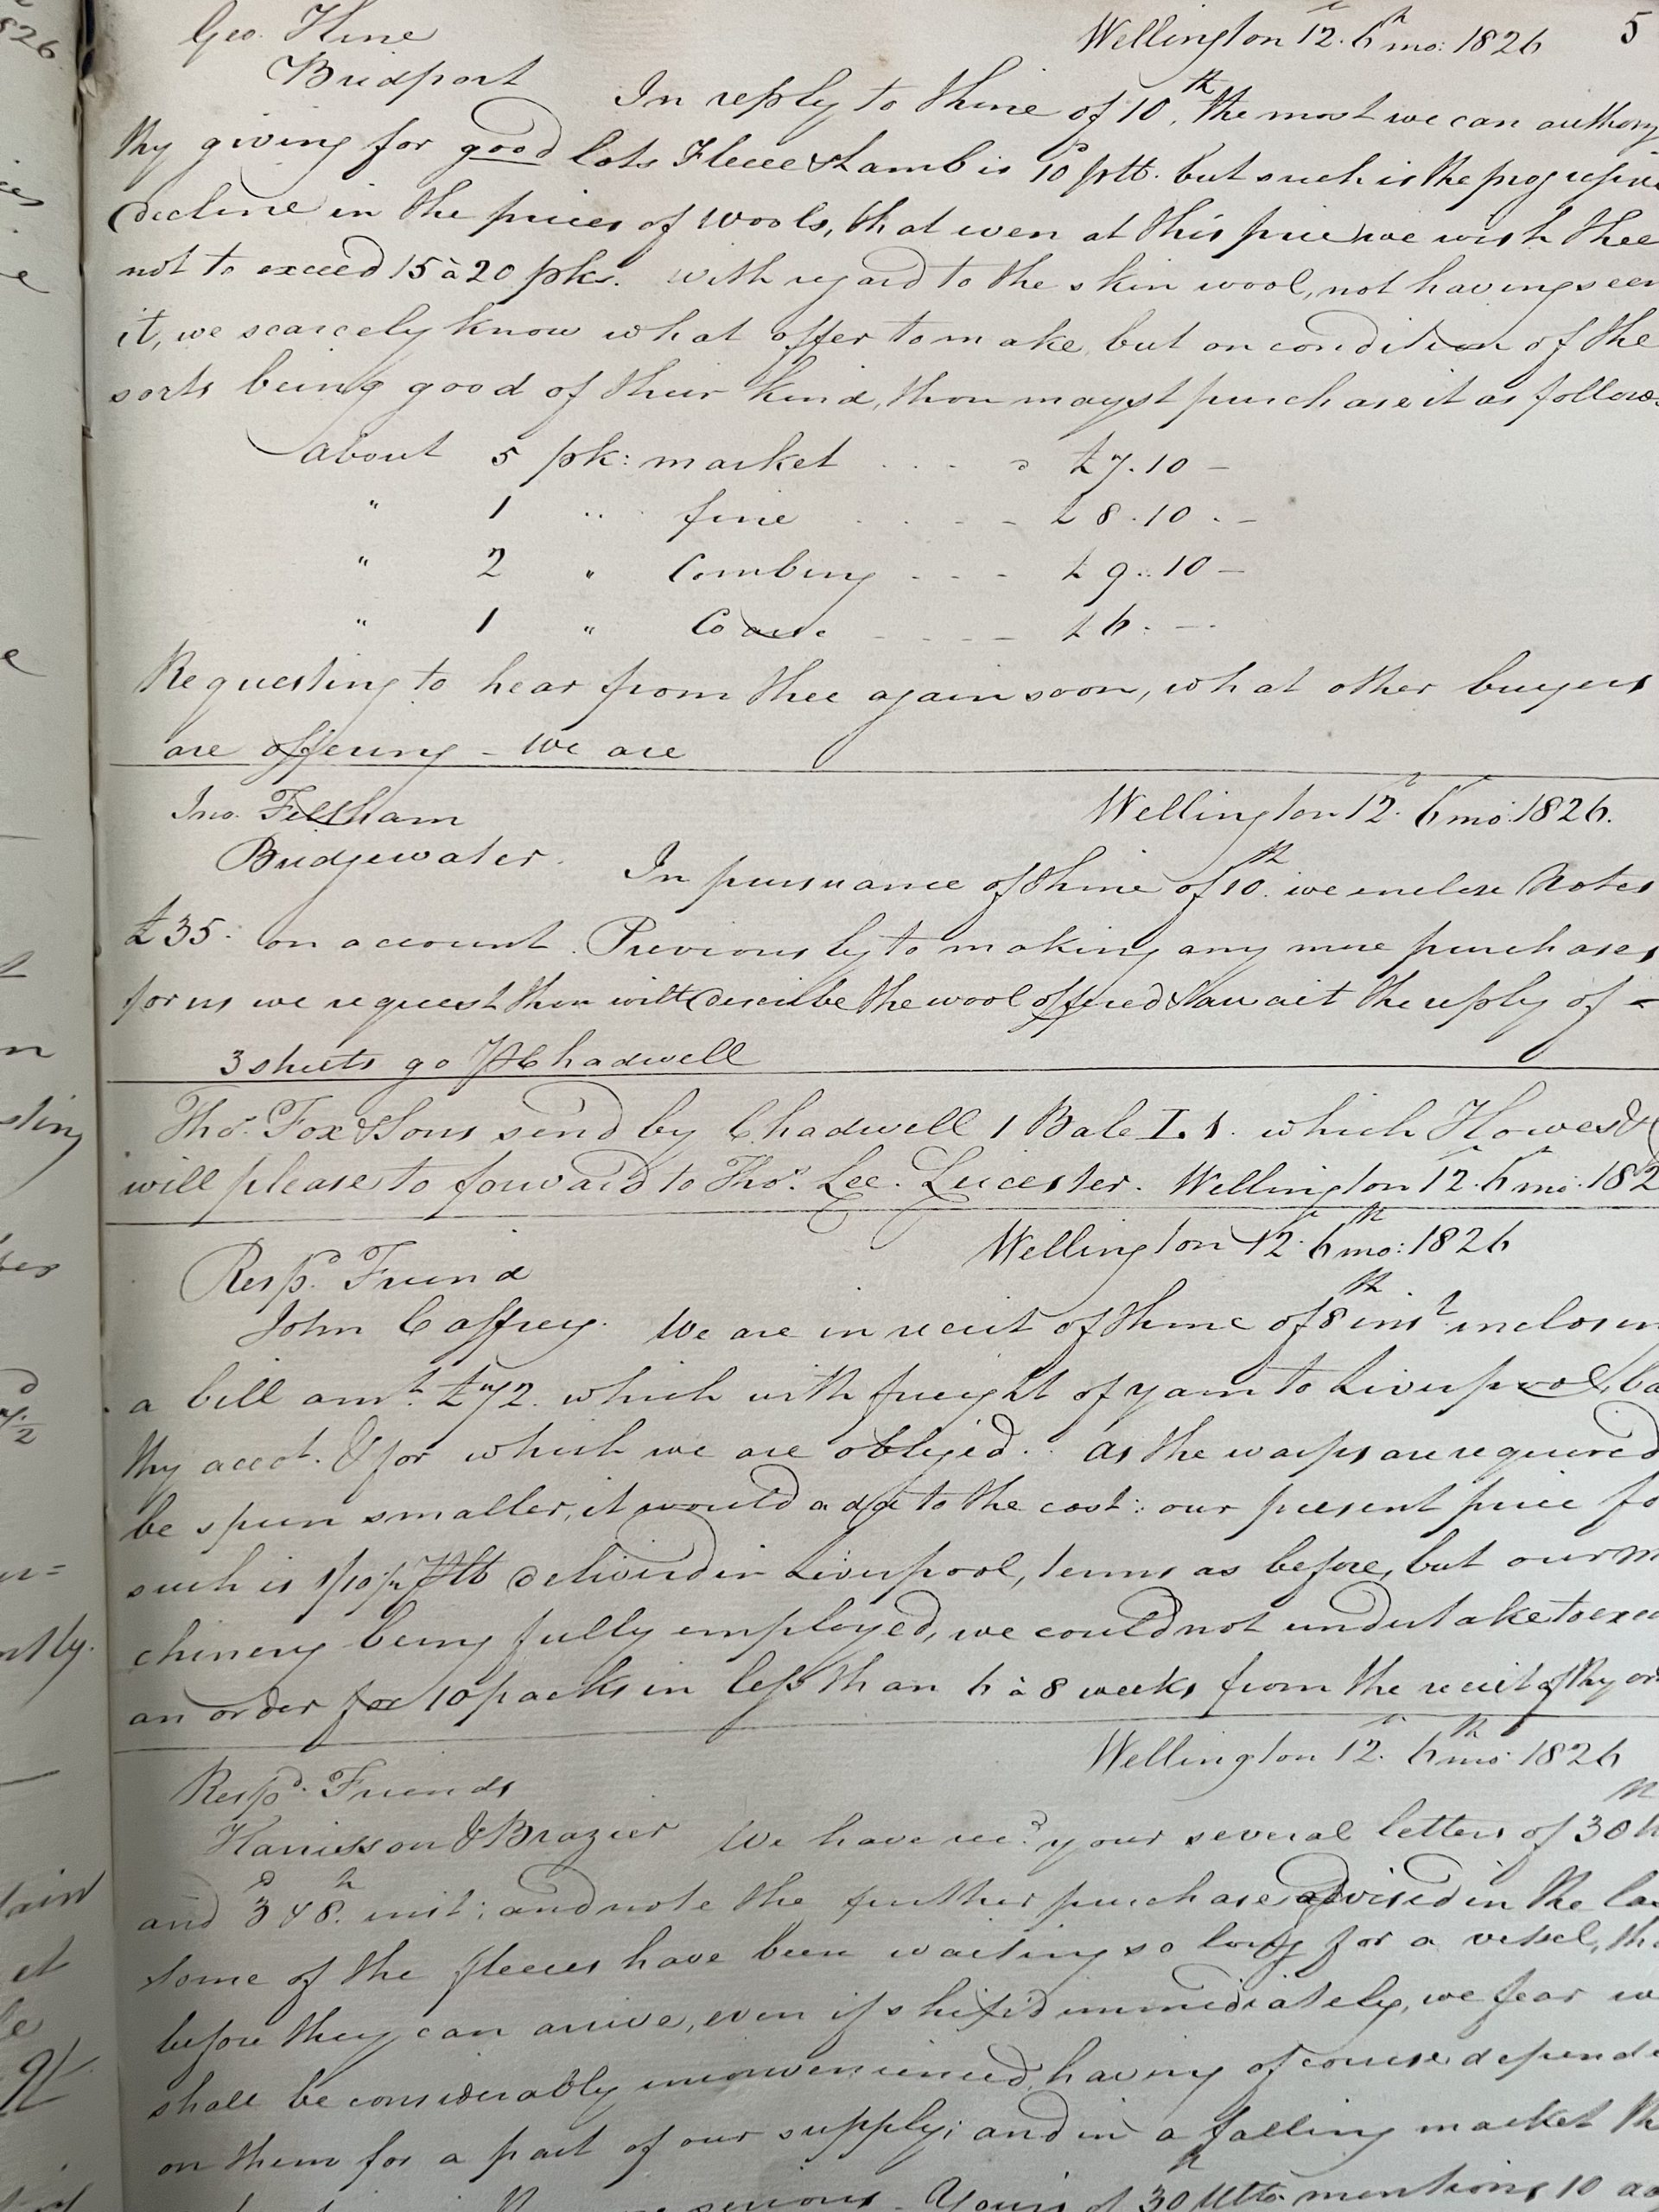 Geo. Hine Wellington 12. 6th mo: 1826 5
Bridport In reply to thine of 10th, the most we can authorize
thy giving for good lots Fleece & Lamb is 10d p lb. but such is the progressive
decline in the prices of Wools, that even at this price we wish thee
not to exceed 15 à 20 pks. With regard to the skin wool, not having seen
it, we scarcely know what offer to make, but on condition of the
sorts being good of their kind, thou mayst purchase it as follows
About 5 pk: market . . . £7.10 –
" 1 " fine . . . £8.10. –
" 2 " Combing . . . £9.10 –
" 1 " Coarse . . . £6. –
Requesting to hear from thee again soon, what other buyers
are offering – We are
Jno. Feltham Wellington 12. 6 mo: 1826.
Bridgewater. In pursuance of thine of 10th. we enclose Notes
£35. on account. Previously to making any more purchases
for us we request thou wilt describe the wool offered & await the reply of –
3 sheets go Chadwell
Thos. Fox & Sons send by Chadwell 1 Bale I. 1. which Howes &
will please to forward to Thos. Lee. Leicester. Wellington 12. 6 mo. 182
Wellington 12. 6th mo: 1826
Resp. Friend
John Caffrey. We are in receit of thine of 8th inst. inclosin
a bill amt. £72. which with freight of yarn to Liverpool, ba
thy accot. & for which we are obliged. As the warps are required
be spun smaller, it would add to the cost: our present price fo
such is 1/10 p lb delivered in Liverpool, terms as before, but our m
chinery being fully employed, we could not undertake to execu
an order for 10 packs in less than 6 à 8 weeks from the receit of thy or
Wellington 12. 6th mo: 1826
Respd. Friends
Harrisson & Brazier We have recd. your several letters of 30th
and 3d & 8th. inst: and note the further purchase advised in the la
some of the fleeces have been waiting so long for a vessel, tha
before they can arrive, even if ship'd immediately, we fear w
shall be considerably inconvenienced, having of course depende
on them for a part of our supply; and in a falling market th
serious – Yours of 30th Ulto mentions 10